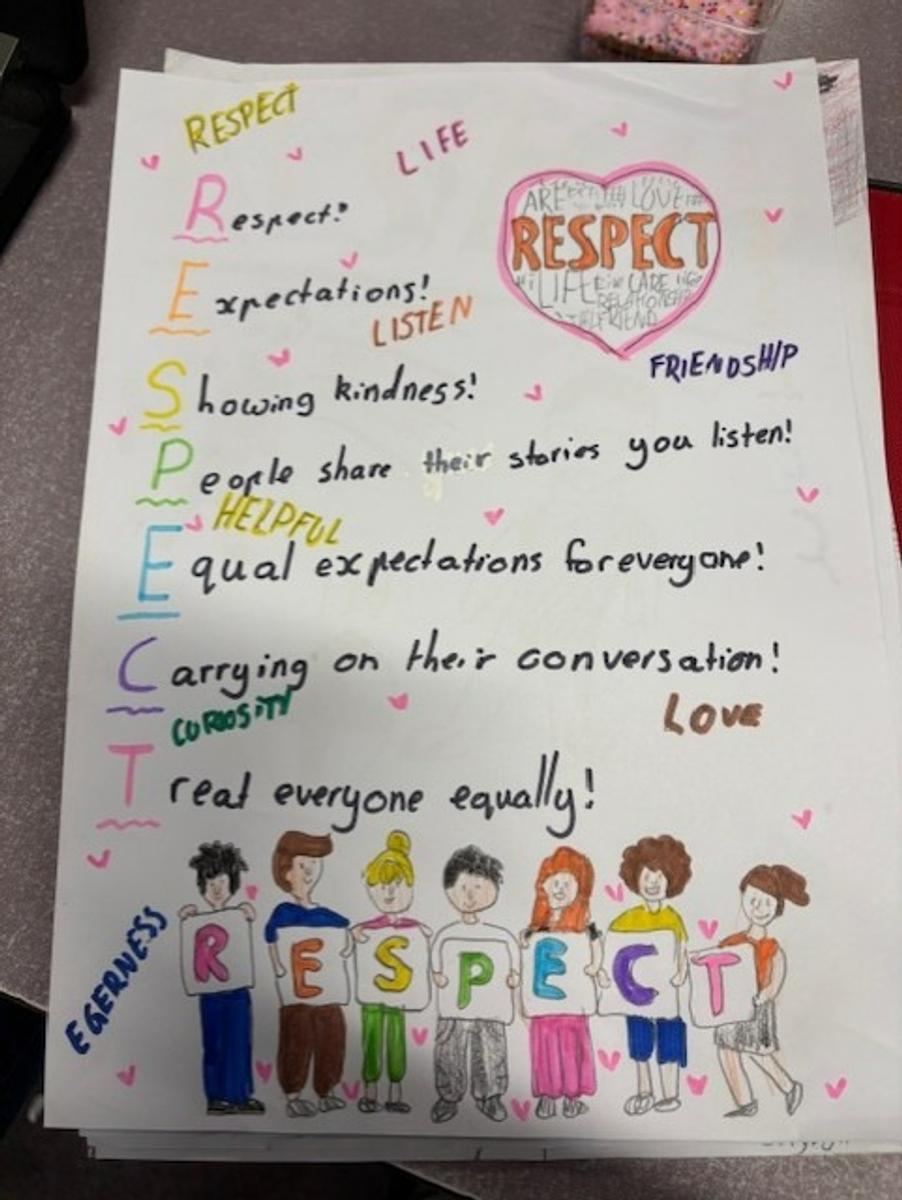 RESPECT
LIFE
Respect!
ARE LOVE
RESPECT
LIFE CARE
RELATIONSHIP
FRIEND
Expectations!
LISTEN
FRIENDSHIP
Showing kindness!
People share their stories you listen!
HELPFUL
Equal expectations for everyone!
Carrying on their conversation!
CUROSITY
LOVE
Treat everyone equally!
EGERNESS
R E S P E C T